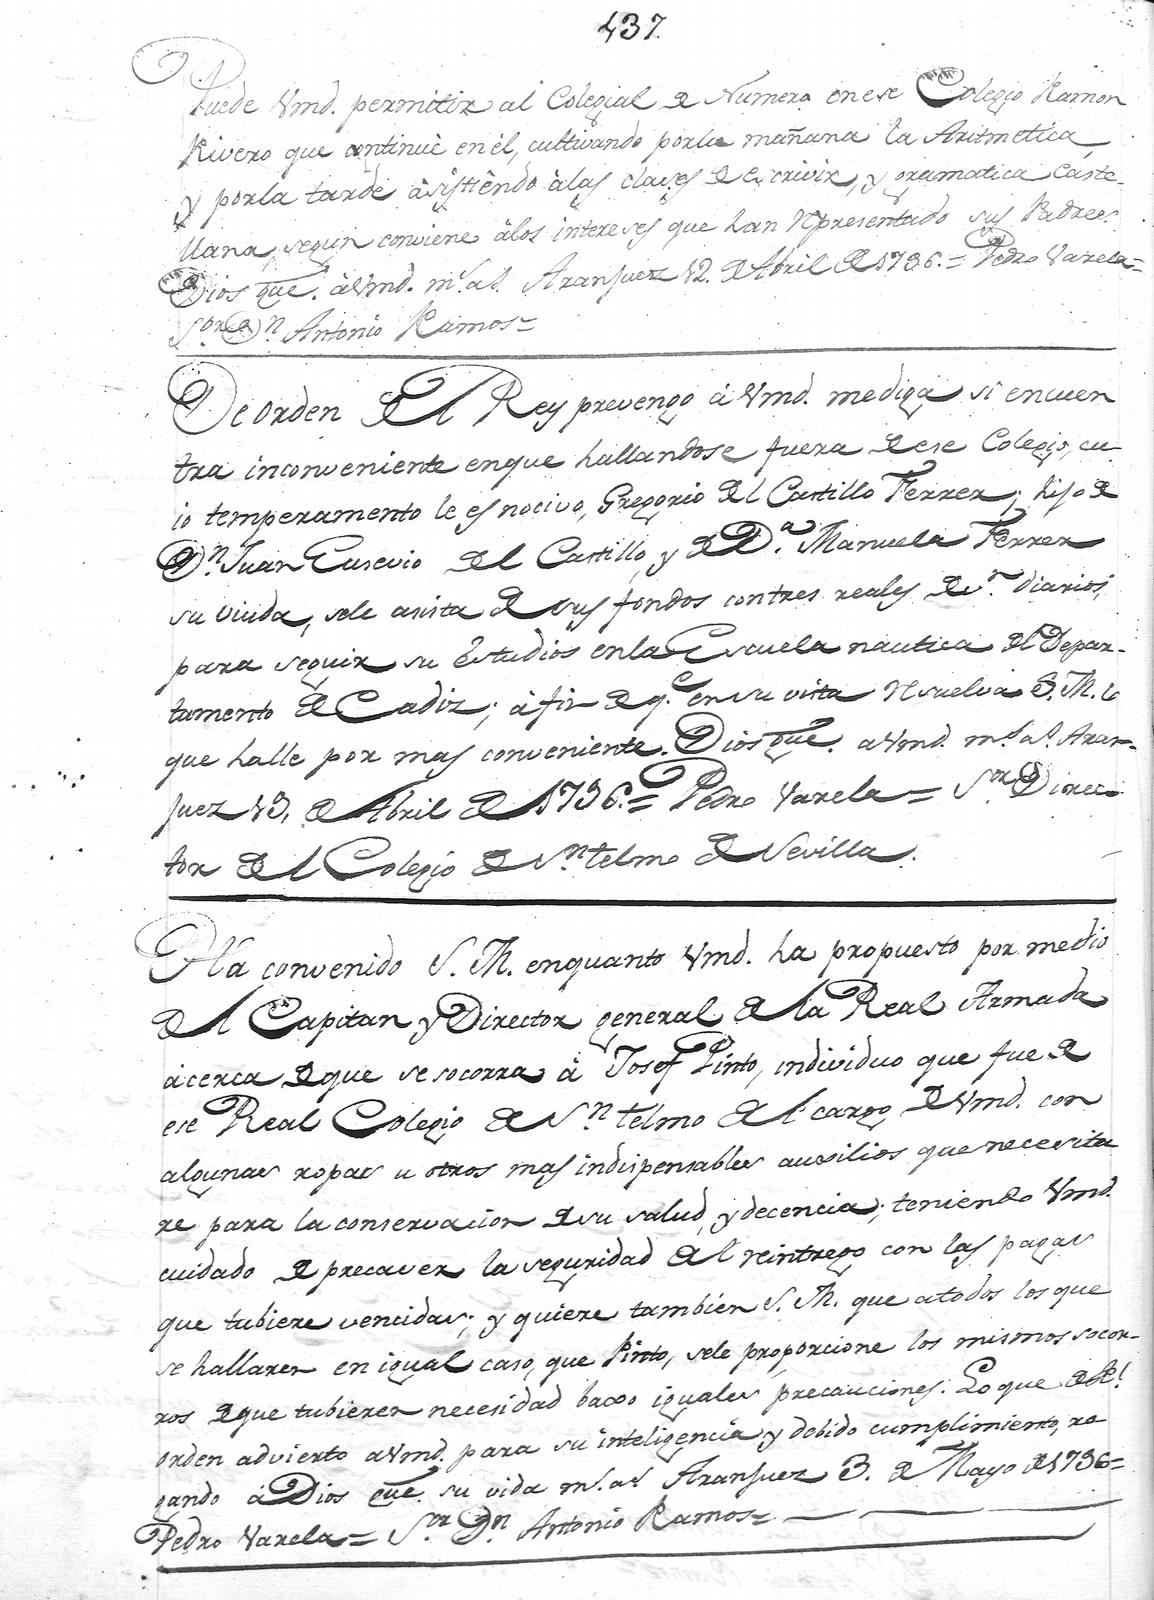 437.
Puede Vmd. permitir al Colegial de Numero en ese Colegio Ramon
Rivero que continuè en èl, cultivando porla mañana la Aritmetica,
y porla tarde àsistiendo àlas clases de escrivir, y gramatica Caste-
llana, segun conviene àlos intereses que han representado sus Padres.
Dios gue. à Vmd. ms. as. Aranjuez 12. de Abril de 1796.= Pedro Varela=
Sor. Dn. Antonio Ramos=
De orden del Rey prevengo à Vmd. mediga si encuen
tra inconveniente enque hallandose fuera de ese Colegio, cu-
io temperamento le es nocivo, Gregorio del Castillo Ferrer, hijo de
Dn. Juan Eusevio del Castillo, y de Da. Manuela Ferrer
su viuda, sele asista de sus fondos contres reales de vn. diarios,
para seguir su Estudios enla Escuela nautica del Depar-
tamento de Cadiz; à fin de qe. en su vista resuelva S. M. lo
que halle por mas conveniente. Dios gue. a Vmd. ms. as. Aran-
juez 13. de Abril de 1796.= Pedro Varela= Sor. Direc-
tor del Colegio de Sn. telmo de Sevilla.
Ha convenido S. M. enquanto Vmd. ha propuesto por medio
del Capitan y Director general de la Real Armada
àcerca de que se socorra à Josef Pinto, individuo que fue de
ese Real Colegio de Sn. telmo del cargo de Vmd. con
algunas ropas u otros mas indispensables auxilios que necesita
re para la conservacion de su salud, y decencia; teniendo Vmd.
cuidado de precaver la seguridad del reintrego con las pagas
que tubiere vencidas; y quiere tambien S. M. que atodos los que
se hallaren en igual caso, que Pinto, sele proporcione los mismos socor-
ros de que tubieren necesidad baxo iguales precauciones. Lo que de Rl.
orden advierto a Vmd. para su inteligencia y debido cumplimiento, ro
gando à Dios gue. su vida ms. as. Aranjuez 3. de Mayo de 1796=
Pedro Varela= Sor. Dn. Antonio Ramos=